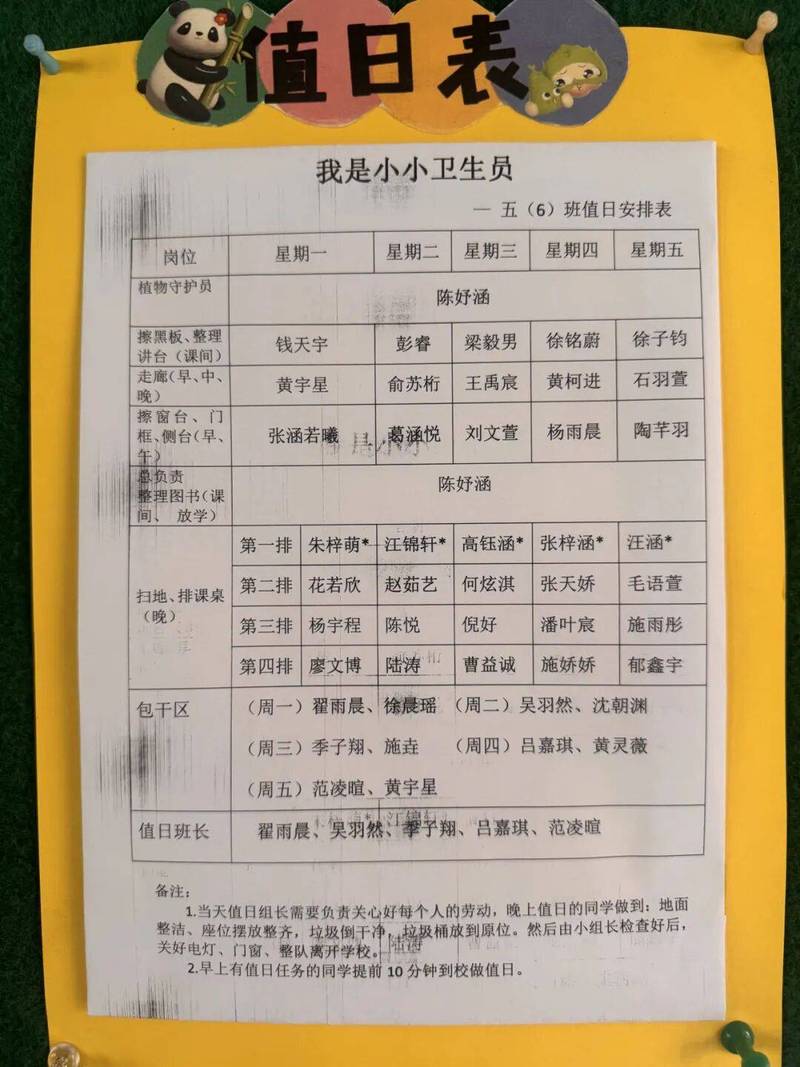 值日表
我是小小卫生员
— 五（6）班值日安排表
岗位 星期一 星期二 星期三 星期四 星期五
植物守护员 陈妤涵
擦黑板、整理
讲台（课间） 钱天宇 彭睿 梁毅男 徐铭蔚 徐子钧
走廊（早、中、
晚） 黄宇星 俞苏桁 王禹宸 黄柯进 石羽萱
擦窗台、门
框、侧台（早、
午） 张涵若曦 葛涵悦 刘文萱 杨雨晨 陶芊羽
总负责
整理图书（课
间、 放学） 陈妤涵
扫地、排课桌
（晚）
第一排 朱梓萌* 汪锦轩* 高钰涵* 张梓涵* 汪涵*
第二排 花若欣 赵茹艺 何炫淇 张天娇 毛语萱
第三排 杨宇程 陈悦 倪好 潘叶宸 施雨彤
第四排 廖文博 陆涛 曹益诚 施娇娇 郁鑫宇
包干区 （周一）翟雨晨、徐晨瑶 （周二）吴羽然、沈朝渊
（周三）季子翔、施垚 （周四）吕嘉琪、黄灵薇
（周五）范凌暄、黄宇星
值日班长 翟雨晨、吴羽然、季子翔、吕嘉琪、范凌暄
备注：
1.当天值日组长需要负责关心好每个人的劳动，晚上值日的同学做到：地面
整洁、座位摆放整齐，垃圾倒干净，垃圾桶放到原位。然后由小组长检查好后，
关好电灯、门窗、整队离开学校。
2.早上有值日任务的同学提前 10 分钟到校做值日。